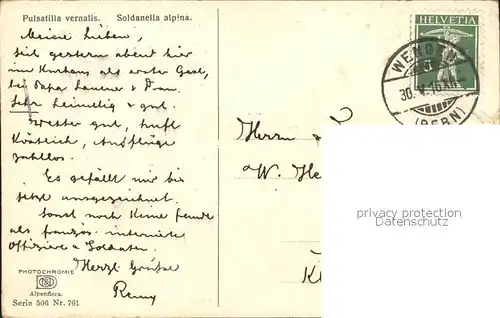 Pulsatilla vernalis. Soldanella alpina.
Meine Lieben,
seit gestern abend hier
im Kurhaus als erster Gast,
bei Papa Lauener & Frau.
Sehr heimelig & gut.
Wetter gut, Luft
Köstlich, Ausflüge
zahllos.
Es gefällt mir bis
jetzt ausgezeichnet.
Sonst noch keine Fremde
als französ. internierte
Offiziere & Soldaten.
Herzl. Grüsse
Remy
PHOTOCHROMIE
Alpenflora.
Serie 506 Nr. 761
HELVETIA
5
WENGEN
30. V. 16
(BERN)
Herrn
W. He
K
privacy protection
Datenschutz